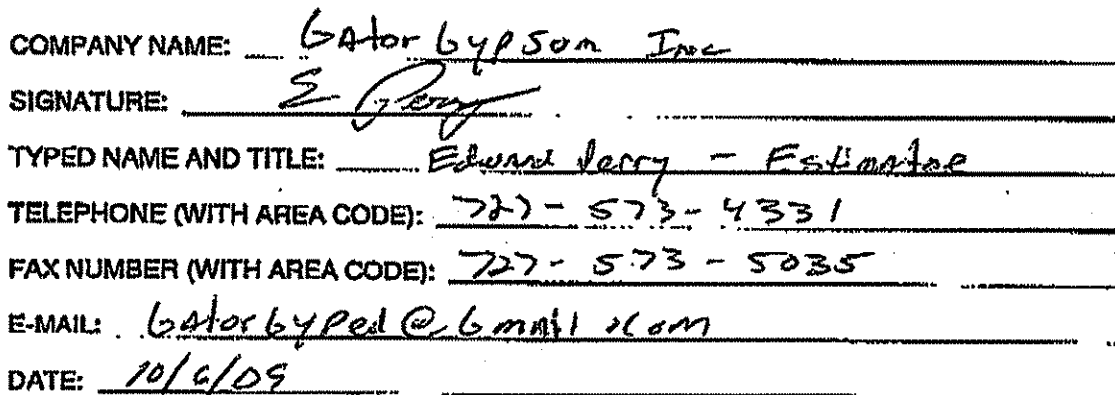 COMPANY NAME: Gator Gypsum Inc
SIGNATURE: E Perry
TYPED NAME AND TITLE: Edward Perry - Estimator
TELEPHONE (WITH AREA CODE): 727-573-4331
FAX NUMBER (WITH AREA CODE): 727-573-5035
E-MAIL: GatorGyped@Gmail.com
DATE: 10/6/09